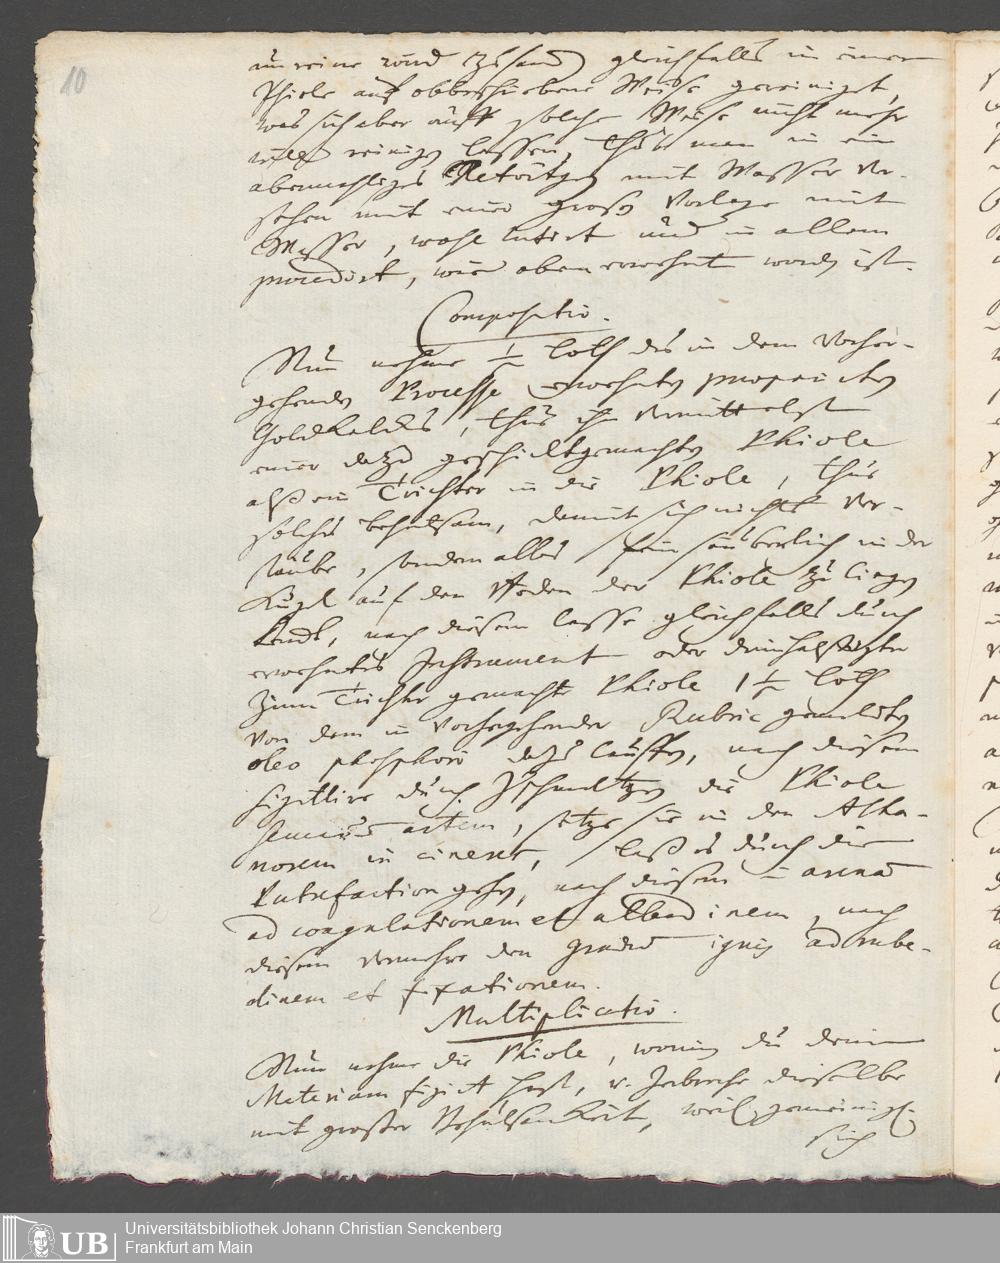 10
unreine wird zusammen gleichfalls in einer
Phiole auf obbeschriebene Weise gereiniget,
was sich aber auff solche Weise nicht mehr
will reinigen lassen, thue man in ein
abermahliges Retörtgen mit Wasser ver-
sehen mit einer großen Vorlage mit
Wasser, wohl lutirt und in allem
procedirt, wie oben erwehnt worden ist.
Compositio.
Nun nehme ½ Loth des in dem vorher-
gehenden Processe erwehnten
Goldkalckes, thue ihn vermittelst
einer dazu geschickt gemachten Phiole
alß ein Trichter in die Phiole, thue
solches behutsam, damit sich nichts ver-
stäube, sondern alles fein säuberlich in der
Kugel auf den Boden der Phiole zu liegen
kombt, nach diesem lasse gleichfalls durch
erwehntes Instrument oder
zum Trichter gemacht Phiole 1½ Loth
von dem in vorhergehender Rubric gemeldten
oleo phosphori dazu lauffen, nach diesem
sigillire durch Zuschmeltzen die Phiole
secundum artem, setze sie in den Atha-
norem in cineres, laß es durch die
Putrefaction gehen, nach diesem in arena
ad coagulationem et albedinem, nach
diesem vermehre den gradum ignis ad rube-
dinem et fixationem.
Multiplicatio.
Nun nehme die Phiole, worin du deine
Materiam figirt hast, u. zerbreche dieselbe
mit großer Behutsamkeit, weil
sich
Universitätsbibliothek Johann Christian Senckenberg
UB Frankfurt am Main